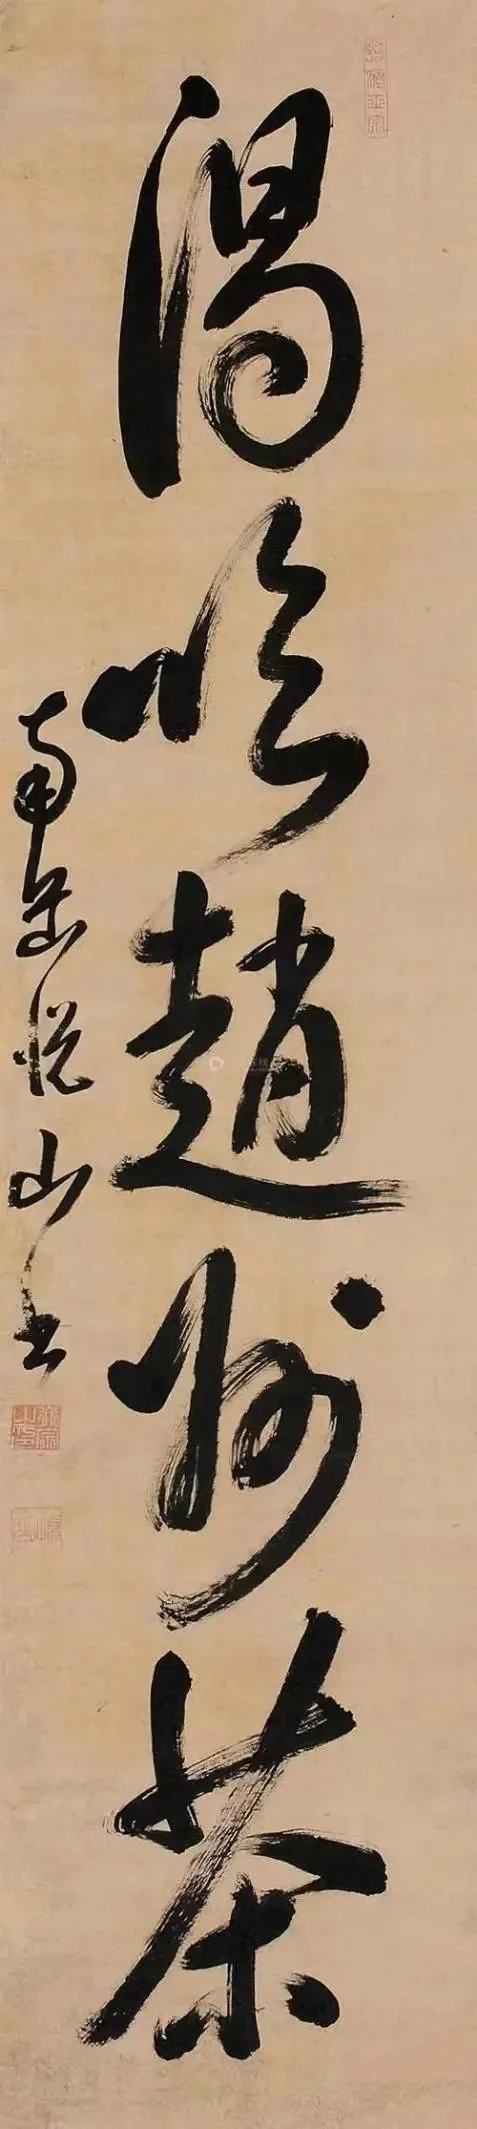 渴吃趙州茶
南岳悅山書